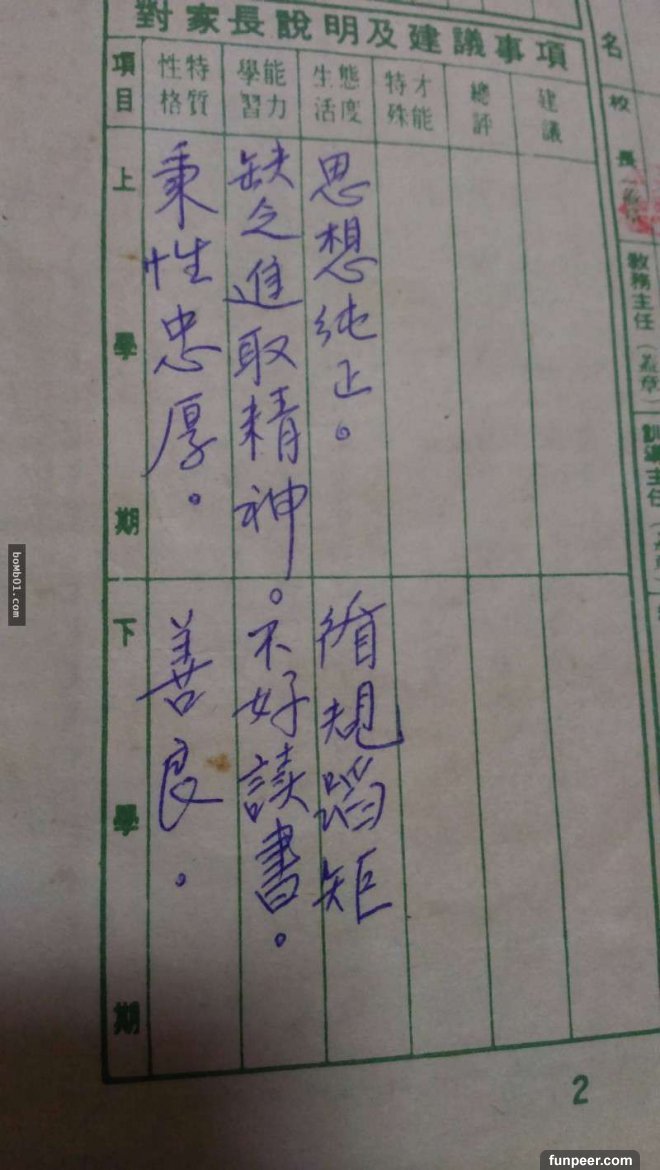 對家長說明及建議事項
項目
性格特質
學習能力
生活態度
特殊才能
總評
建議
上學期
秉性忠厚。
缺乏進取精神。
思想純正。
下學期
善良。
不好讀書。
循規蹈矩
名
校長
教務主任（蓋章）
訓導主任
2
bomb01.com
funpeer.com